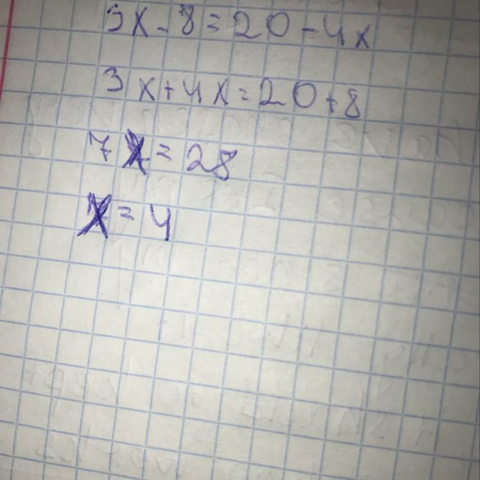 3x-8=20-4x
3x+4x=20+8
7x=28
x=4